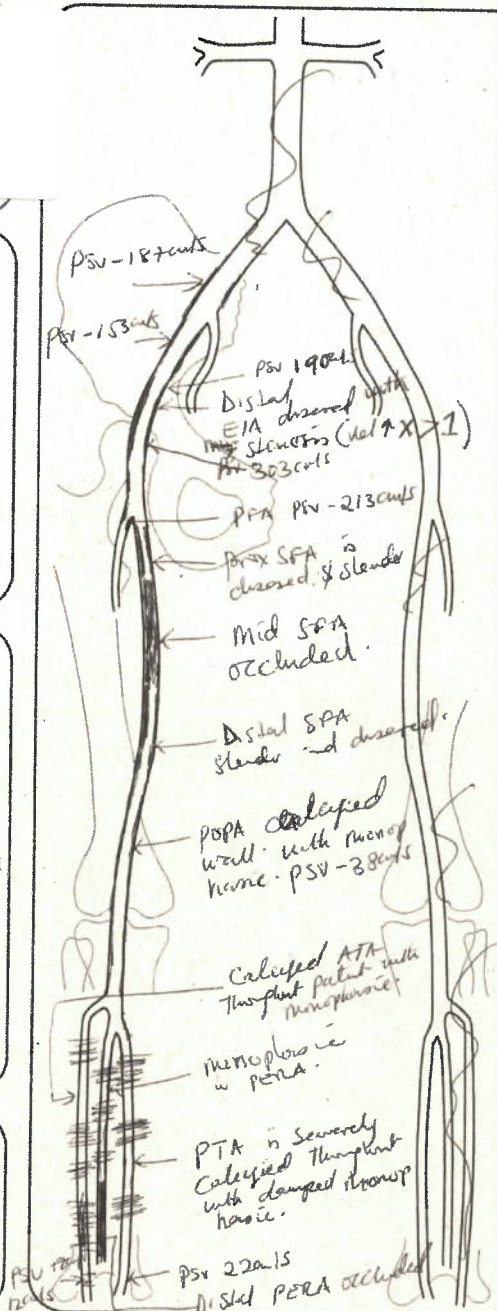 PSV-187cm/s
PSV-153cm/s
PSV 190cm/s
Distal
EIA diseased with
stenosis (vel ↑ x >1)
PSV 303cm/s
PFA PSV-213cm/s
prox SFA is
diseased & slender
Mid SFA
occluded.
Distal SFA
slender and diseased.
POPA calcified
wall. with monop
hasic. PSV-38cm/s
Calcified ATA
Throughout patent with
monophasic
monophasic
in PERA.
PTA is Severely
Calcified Throughout
with damped monop
hasic.
PSV
PSV 22cm/s
Distal PERA occluded